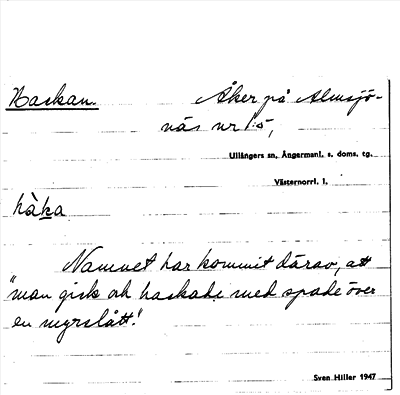 Haskan. Åker på Almsjö-
näs nr 1:5,
Ullångers sn, Ångermanl. s. doms. tg.
Västernorrl. l.
hàka
Namnet har kommit därav, att
"man gick och haskade med spade över
en myrslått."
Sven Hiller 1947